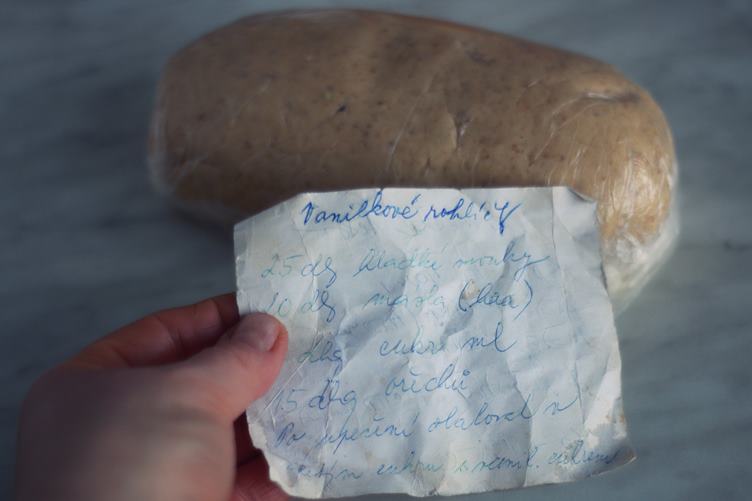 Vanilkové rohlíčky
25 dkg hladké mouky
10 dkg másla (hera)
dkg cukru ml
15 dkg ořechů
Po upečení obalovat v
cukru s vanil. cukrem